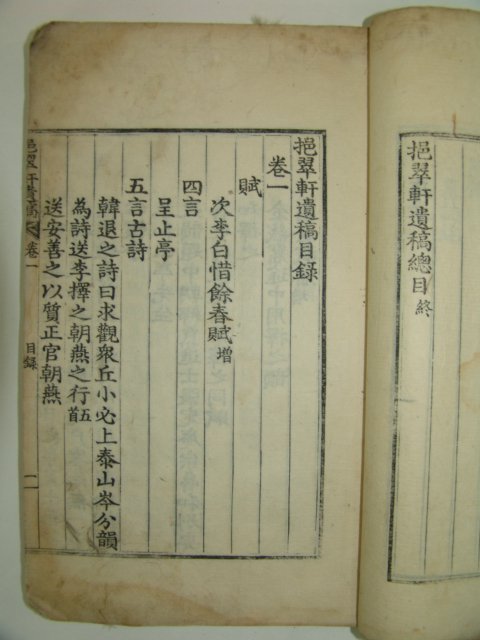 挹翠軒遺稿總目終
挹翠軒遺稿目録
卷一
賦
次李白惜餘春賦增
四言
呈止亭
五言古詩
韓退之詩曰求觀衆丘小必上泰山岑分韻
為詩送李擇之朝燕之行五首
送安善之以質正官朝燕
挹翠軒遺稿 卷一 目録 一